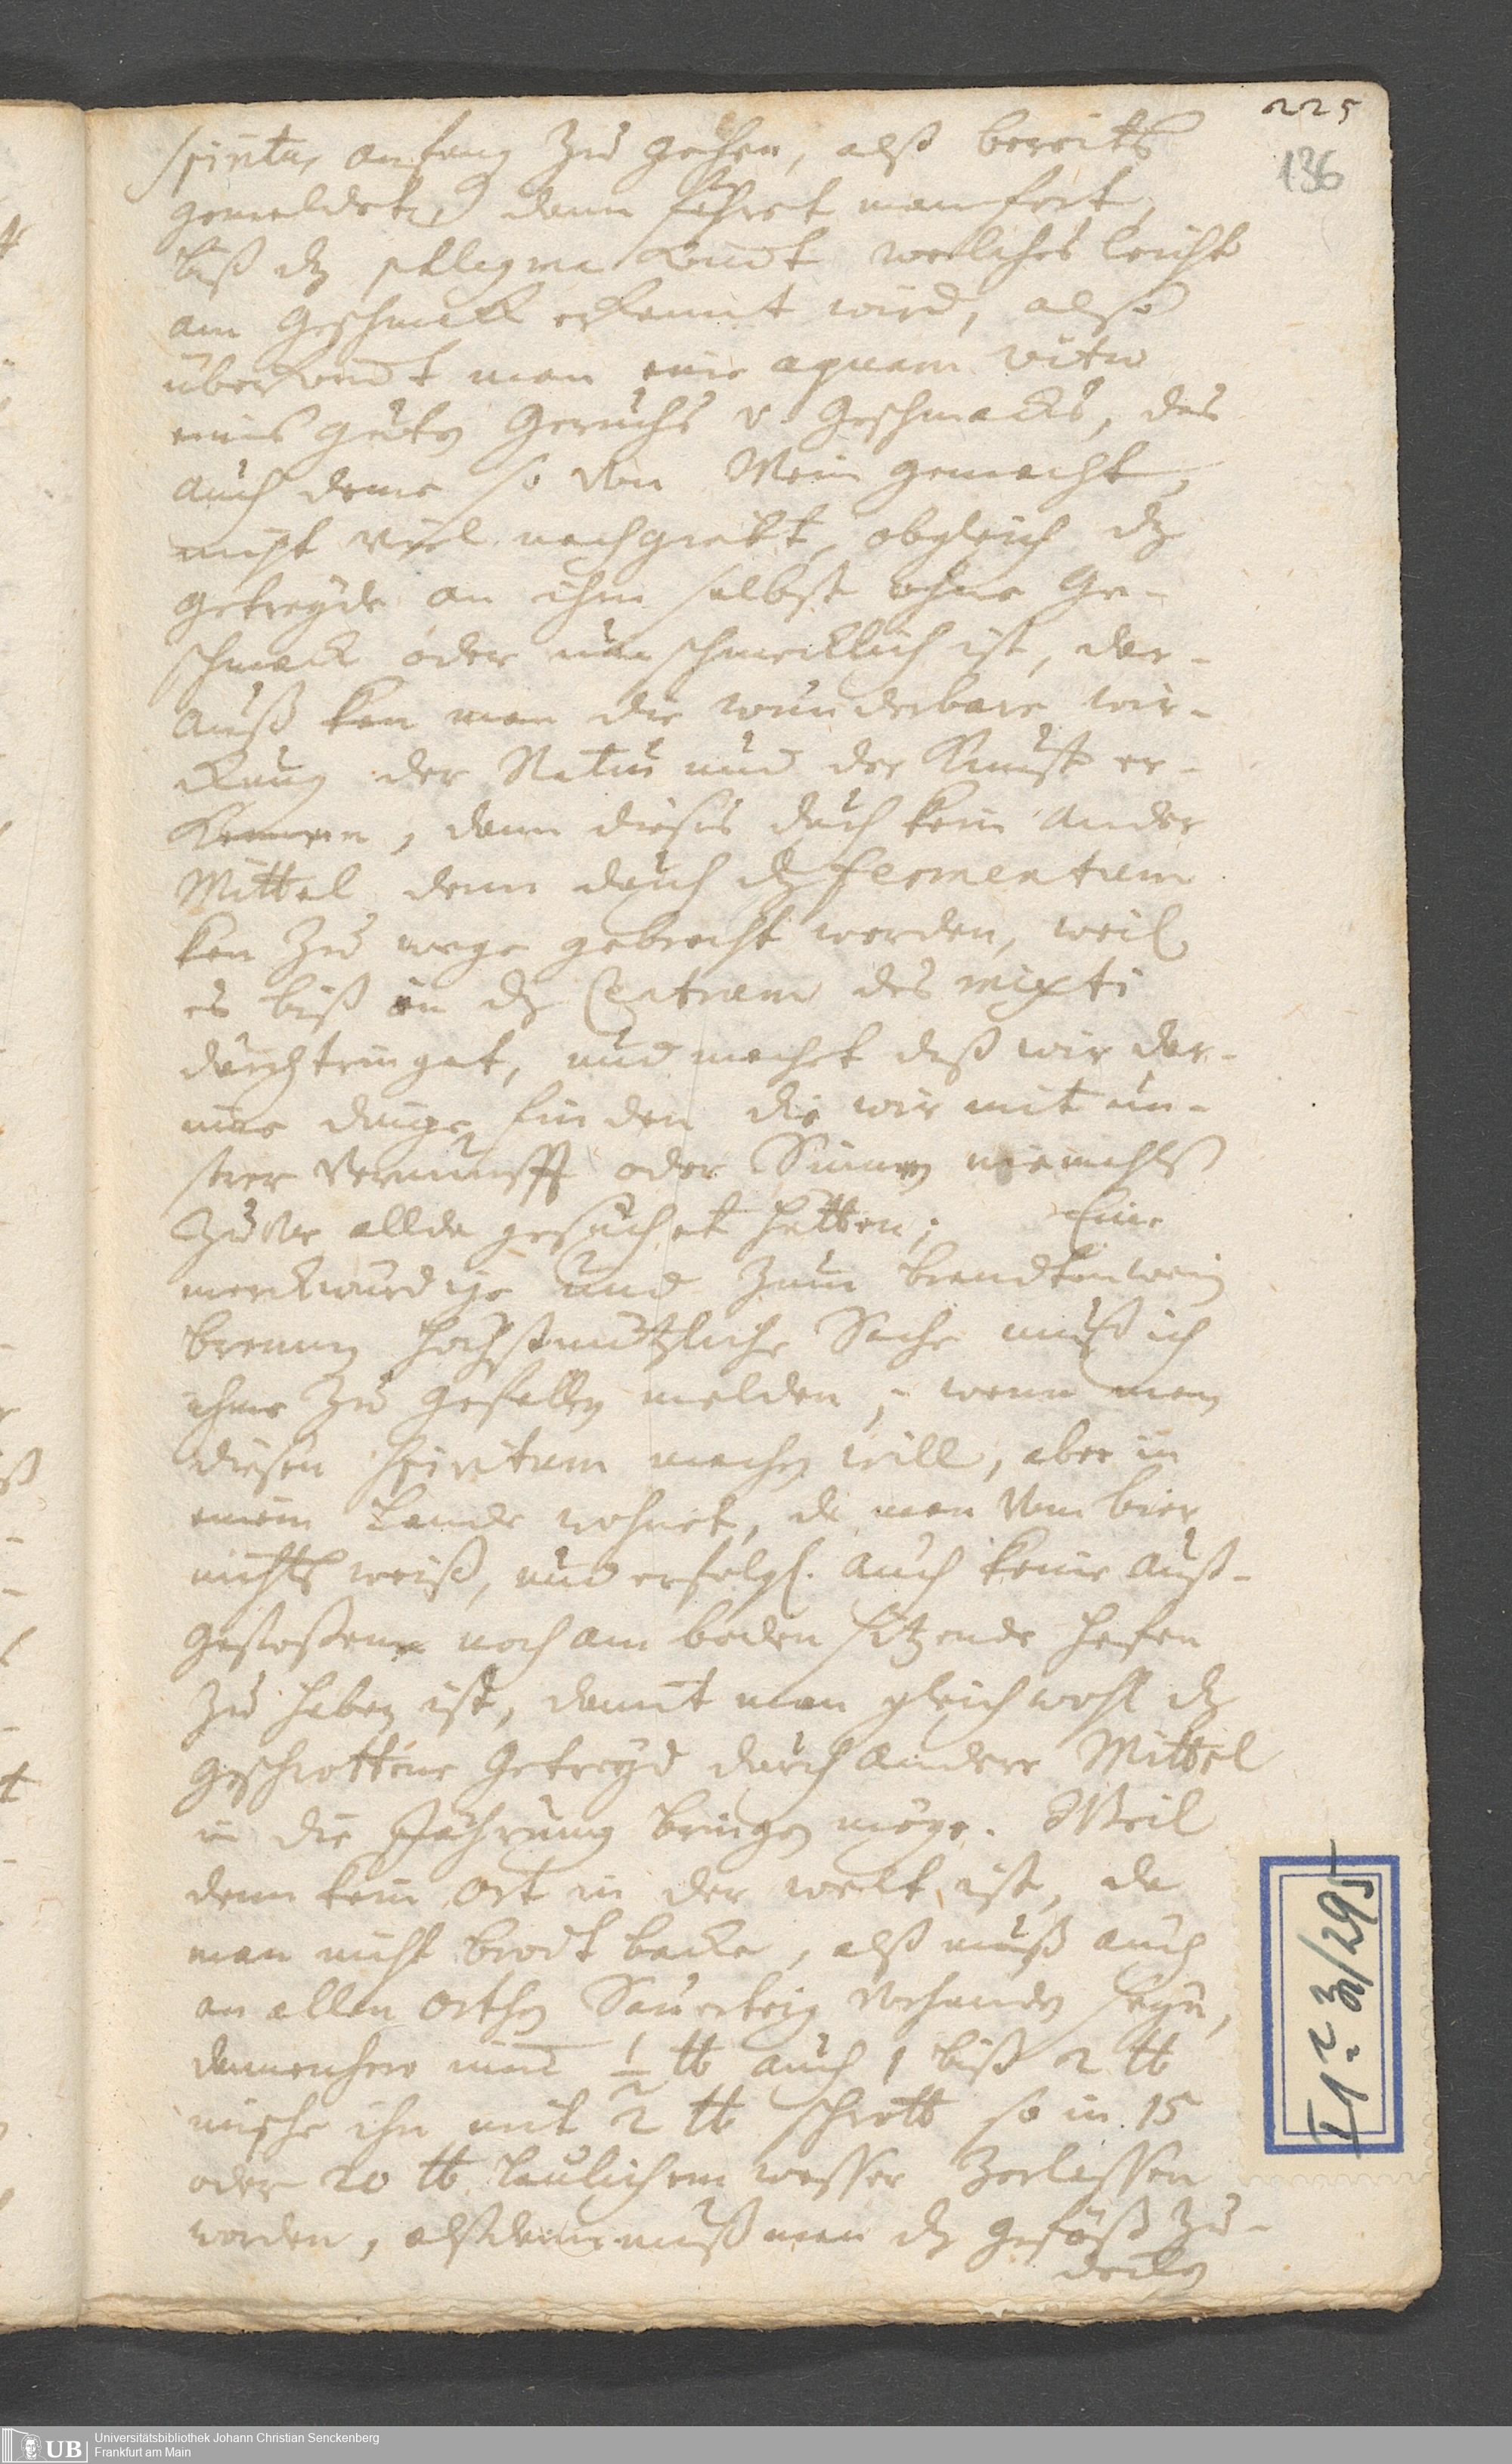 225
136
spiritus anfang zu gehen, alß bereits
gemeldet, dann fähret man fort,
biß dz phlegma komt welches leicht
am Geschmack erkannt wird, also
überkomt man eine aquam vitæ
eines guten Geruchs v. Geschmacks, das
auch deme so von Wein gemacht,
nicht viel nachgiebt, obgleich dz
getreyde an ihm selbst ohne Ge-
schmack oder unschmecklich ist, dar-
auß kan man die wunderbare wir-
ckung der Natur und der Kunst er-
kennen, dann dieses durch kein ander
Mittel denn durch dz fermentum
kan zu wege gebracht werden, weil
es biß in dz Centrum des mixti
durchtringet, und machet daß wir dar-
inne dinge finden die wir mit un-
srer Vernunfft oder Sinnen niemahls
zuvor allda gesuchet hetten; Eine
merckwürdige und zum brandtenwein
brennen höchstnützliche Sache muß ich
ihme zu gefallen melden, wenn man
diesen spiritum machen will, aber in
einem Lande wohnet, da man vom bier
nichts weiß, und erfolgl. auch keine auß-
gestoßene noch am boden sitzende hefen
zu haben ist, damit man gleichwohl dz
geschrottene Getreyd durch andere Mittel
in die Jährung bringen möge. Weil
denn kein ort in der welt ist, da
man nicht brodt backe, alß muß auch
an allen orthen Sauerteig vorhanden seyn,
dannenhero nim 1/2 ℔ auch 1 biß 2 ℔
mische ihn mit 2 ℔ schrott so in 15
oder 20 ℔ laulichem wasser zerlassen
worden, alßdann muß man dz gefäß zu-
decken
UB
Universitätsbibliothek Johann Christian Senckenberg
Frankfurt am Main